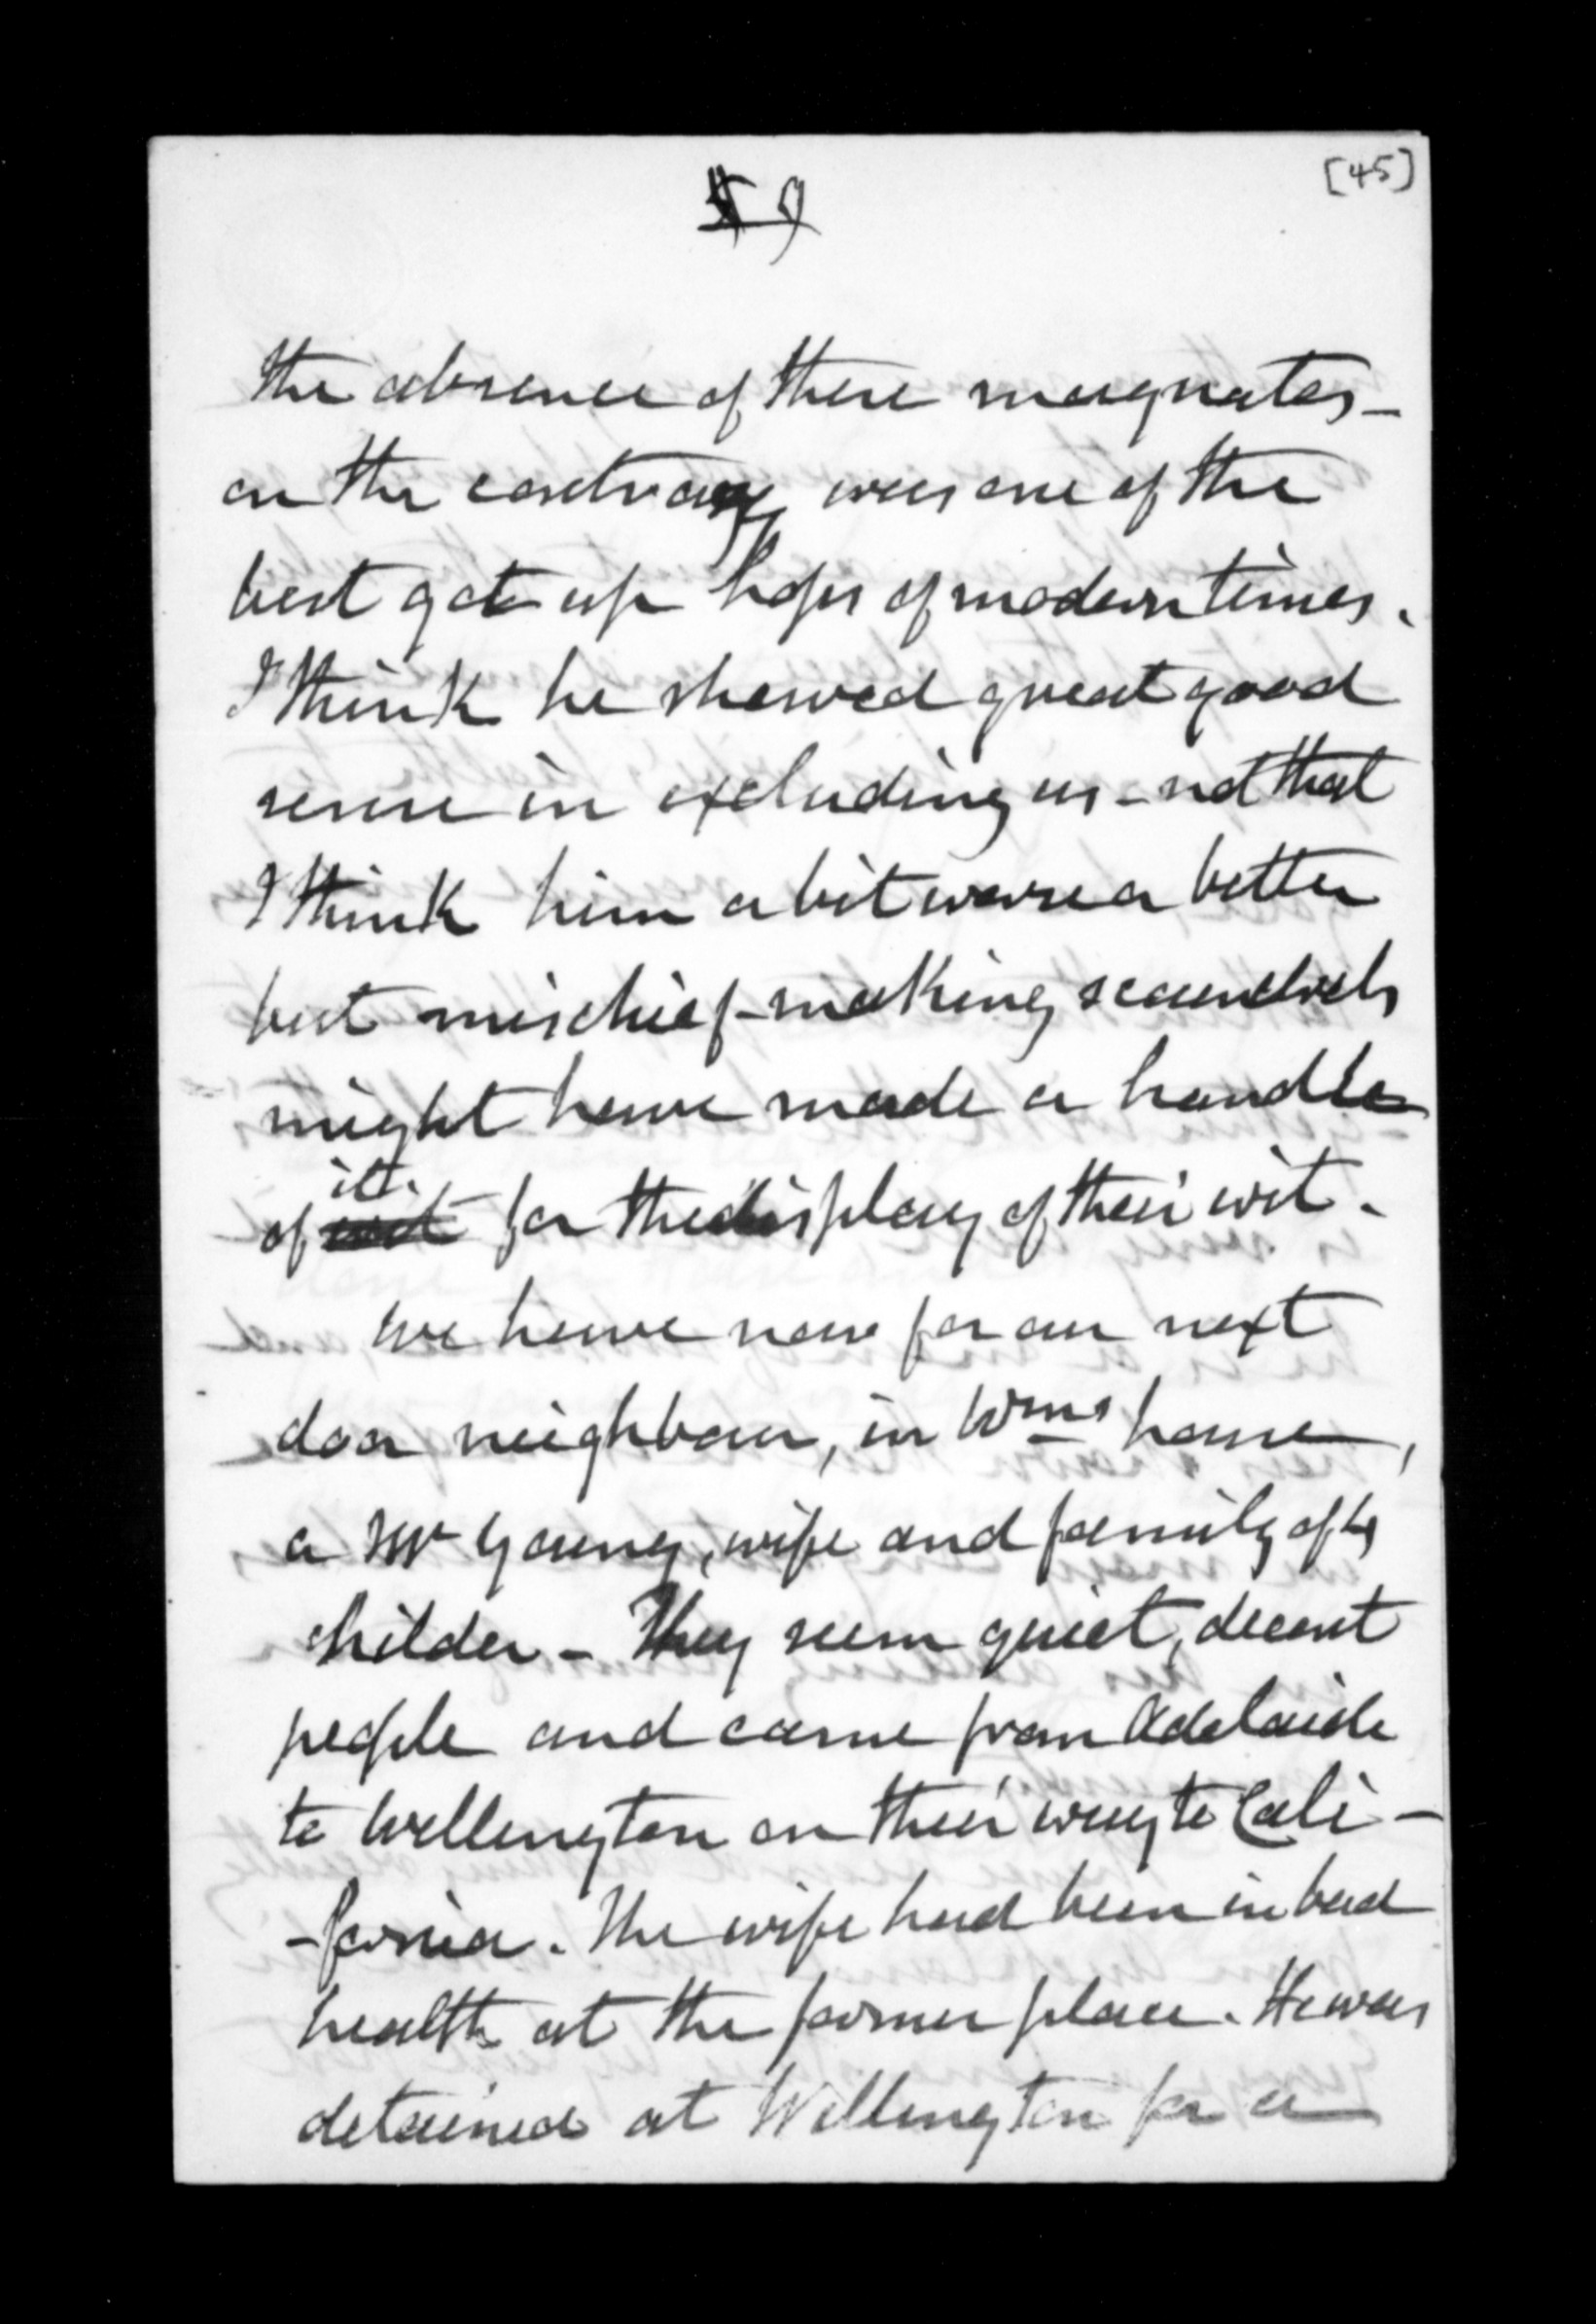 [45]
9
the absence of these magnates -
on the contrary was one of the
best got up hops of modern times.
I think he shewed great good
sense in excluding us - not that
I think him a bit worse or better
but mischief-making scoundrels
might have made a handle
it
of for the display of their wit.
We have now for our next
door neighbour, in Wms house,
a Mr Young, wife and family of 4
childer - They seem quiet, decent
people and came from Adelaide
to Wellington on their way to Cali-
-fornia. The wife had been in bad
health at the former place. He was
detained at Wellington for a